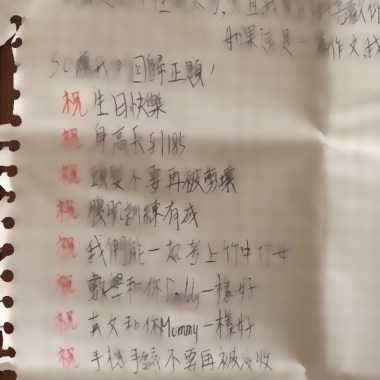 如果這是一篇作文我
回歸正題！
祝 生日快樂
祝 身高長到185
祝 頭髮不要再被剪壞
祝 腹肌訓練有成
祝 我們能一起考上竹中竹女
祝 數學和你Daddy一樣好
祝 英文和你Mommy一樣好
祝 手機 不要再被沒收